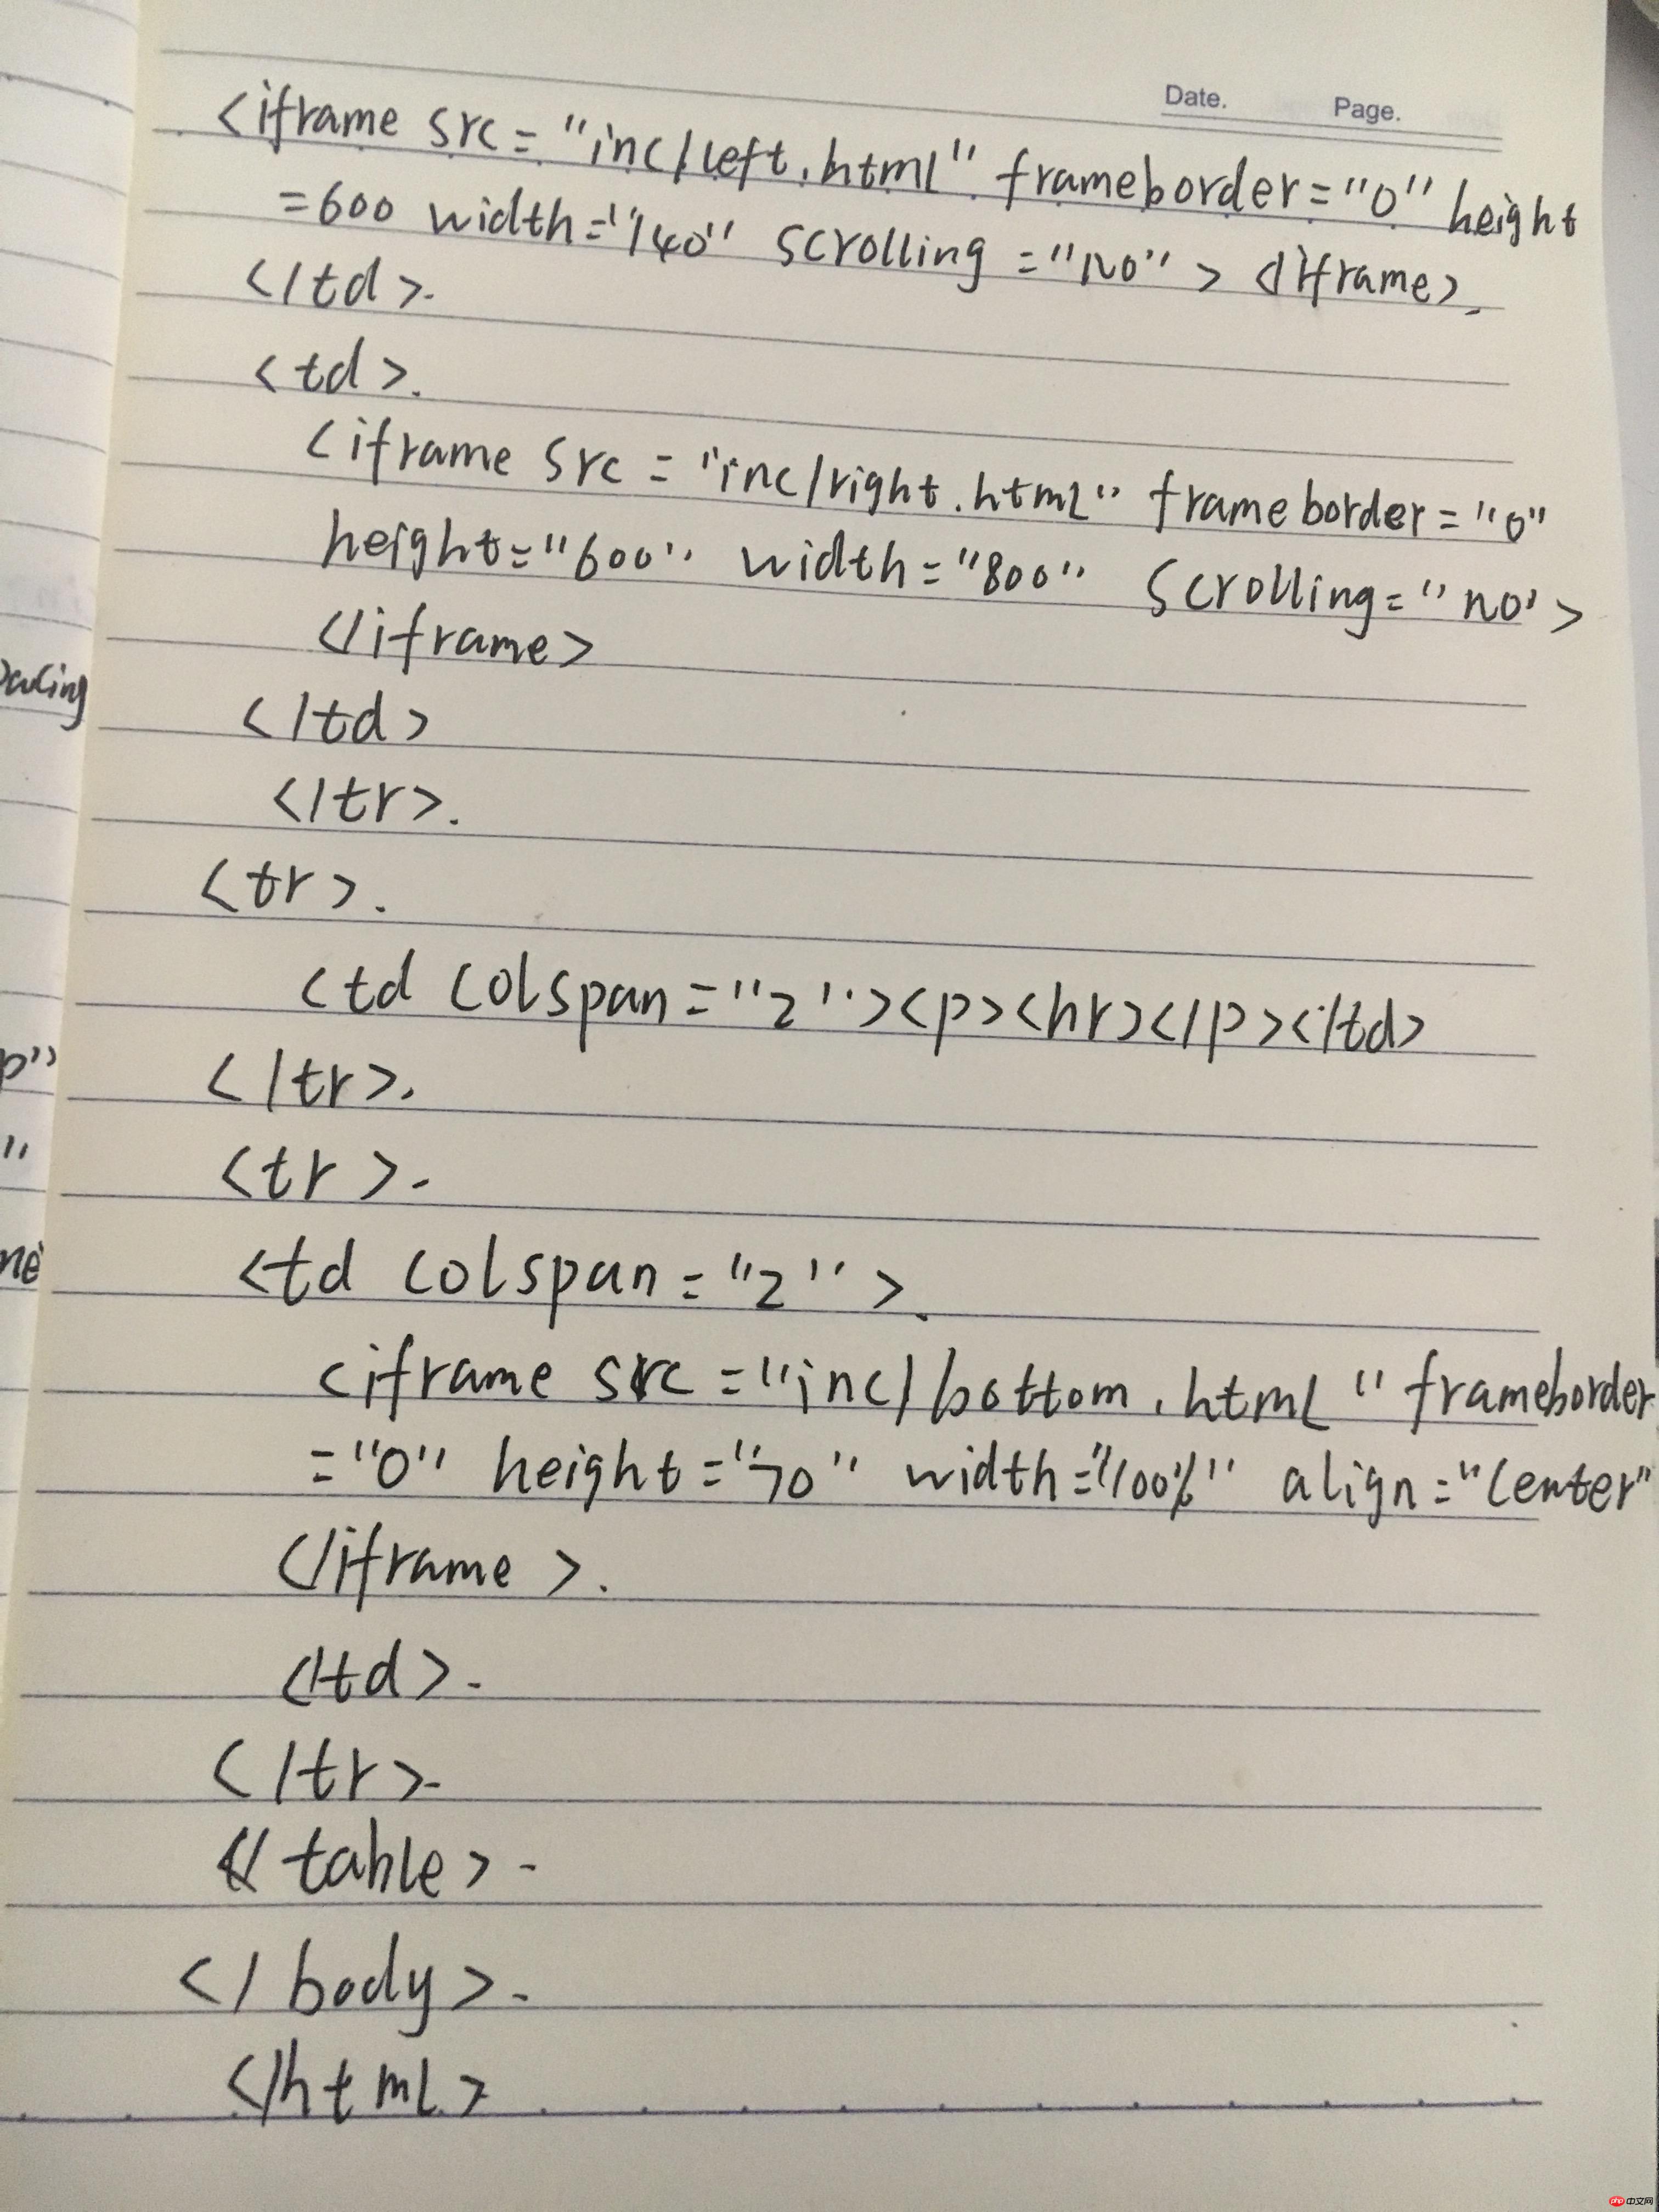 Date. Page.
<iframe src="inc/left.html" frameborder="0" height
=600 width="140" scrolling="no"> </iframe>.
</td>.
<td>.
<iframe src="inc/right.html" frameborder="0"
height="600" width="800" scrolling="no'>
</iframe>
</td>
</tr>.
<tr>.
<td colspan="2"><p><hr></p></td>
</tr>.
<tr>.
<td colspan="2">.
<iframe src="inc/bottom.html" frameborder
="0" height="70" width="100%" align="center"
</iframe>.
</td>.
</tr>.
</table>.
</body>.
</html>
p"
"
me
php 中文网